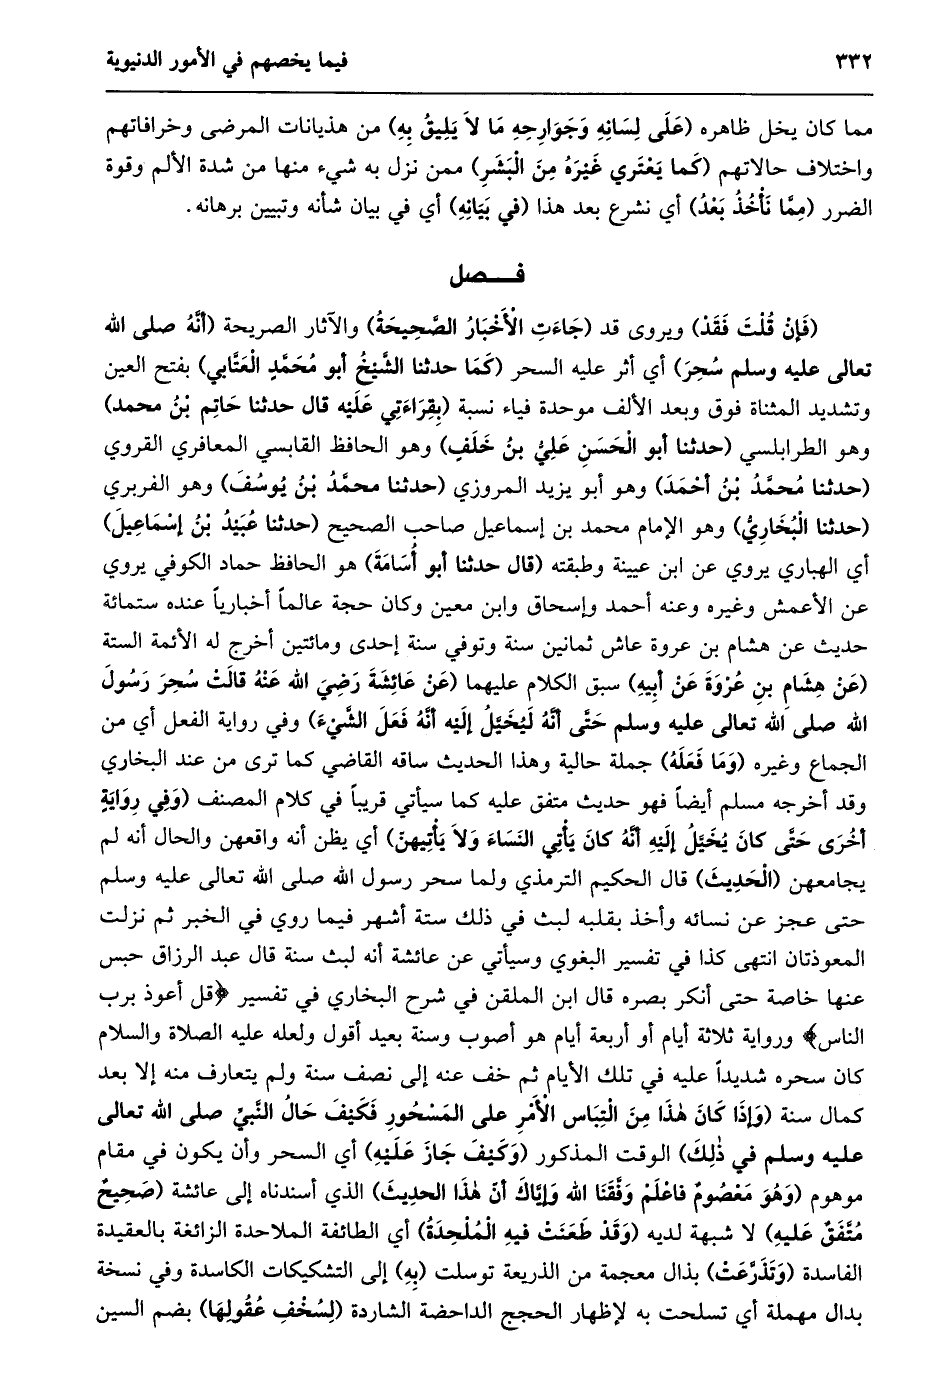 ٣٣٢ فيما يخصهم في الأمور الدنيوية
مما كان يخل ظاهره (عَلَى لِسَانِهِ وَجَوَارِحِهِ مَا لاَ يَلِيقُ بِهِ) من هذيانات المرضى وخرافاتهم
واختلاف حالاتهم (كَما يَعْتَري غَيْرَهُ مِنَ الْبَشَرِ) ممن نزل به شيء منها من شدة الألم وقوة
الضرر (مِمَّا نَأْخُذُ بَعْدُ) أي نشرع بعد هذا (في بَيَانِهِ) أي في بيان شأنه وتبيين برهانه.
فـــصل
(فَإِنْ قُلْتَ فَقَدْ) ويروى قد (جَاءَتِ الْأَخْبَارُ الصَّحِيحَةُ) والآثار الصريحة (أَنَّهُ صلى الله
تعالى عليه وسلم سُحِرَ) أي أثر عليه السحر (كَمَا حدثنا الشَّيْخُ أبو مُحَمَّدٍ الْعَتَّابي) بفتح العين
وتشديد المثناة فوق وبعد الألف موحدة فياء نسبة (بِقِرَاءَتِي عَلَيْه قال حدثنا حَاتِم بْنُ محمد)
وهو الطرابلسي (حدثنا أبو الْحَسَنِ عَلِيُّ بنُ خَلَفٍ) وهو الحافظ القابسي المعافري القروي
(حدثنا مُحَمَّدُ بْنُ أَحْمَدَ) وهو أبو يزيد المروزي (حدثنا محمَّدُ بْنُ يُوسُفَ) وهو الفربري
(حدثنا الْبُخَارِيُّ) وهو الإمام محمد بن إسماعيل صاحب الصحيح (حدثنا عُبَيْدُ بْنُ إِسْمَاعِيلَ)
أي الهباري يروي عن ابن عيينة وطبقته (قال حدثنا أبو أُسَامَةَ) هو الحافظ حماد الكوفي يروي
عن الأعمش وغيره وعنه أحمد وإسحاق وابن معين وكان حجة عالماً أخبارياً عنده ستمائة
حديث عن هشام بن عروة عاش ثمانين سنة وتوفي سنة إحدى ومائتين أخرج له الأئمة الستة
(عَنْ هِشَامِ بنِ عُرْوَةَ عَنْ أَبِيهِ) سبق الكلام عليهما (عَنْ عَائِشَةَ رَضِيَ الله عَنْهُ قالَتْ سُحِرَ رَسُولَ
الله صلى الله تعالى عليه وسلم حَتَّى أنَّهُ لَيُخَيَّلُ إلَيْه أنَّهُ فَعَلَ الشَّيْءَ) وفي رواية الفعل أي من
الجماع وغيره (وَمَا فَعَلَهُ) جملة حالية وهذا الحديث ساقه القاضي كما ترى من عند البخاري
وقد أخرجه مسلم أيضاً فهو حديث متفق عليه كما سيأتي قريباً في كلام المصنف (وَفِي رِوَايَةٍ
أُخْرَى حَتَّى كانَ يُخَيَّلُ إلَيْهِ أنَّهُ كانَ يَأْتِي النِّسَاءَ وَلاَ يَأْتِيهنَ) أي يظن أنه واقعهن والحال أنه لم
يجامعهن (الْحَدِيثَ) قال الحكيم الترمذي ولما سحر رسول الله صلى الله تعالى عليه وسلم
حتى عجز عن نسائه وأخذ بقلبه لبث في ذلك ستة أشهر فيما روي في الخبر ثم نزلت
المعوذتان انتهى كذا في تفسير البغوي وسيأتي عن عائشة أنه لبث سنة قال عبد الرزاق حبس
عنها خاصة حتى أنكر بصره قال ابن الملقن في شرح البخاري في تفسير ﴿قل أعوذ برب
الناس﴾ ورواية ثلاثة أيام أو أربعة أيام هو أصوب وسنة بعيد أقول ولعله عليه الصلاة والسلام
كان سحره شديداً عليه في تلك الأيام ثم خف عنه إلى نصف سنة ولم يتعارف منه إلا بعد
كمال سنة (وَإِذَا كَانَ هٰذَا مِنَ الْتِبَاس الْأَمْرِ على المَسْحُورِ فَكَيْفَ حَالُ النَّبيِّ صلى الله تعالى
عليه وسلم في ذٰلِكَ) الوقت المذكور (وَكَيْفَ جَازَ عَلَيْهِ) أي السحر وأن يكون في مقام
موهوم (وَهُوَ مَعْصُومٌ فاعْلَمْ وَفَّقَنَا الله وَإيَّاكَ أنّ هٰذَا الحديثَ) الذي أسندناه إلى عائشة (صَحِيحٌ
مُتَّفَقٌ عَليهِ) لا شبهة لديه (وَقَدْ طَعَنَتْ فيهِ الْمُلْحِدَةُ) أي الطائفة الملاحدة الزائغة بالعقيدة
الفاسدة (وَتَذَرَّعَتْ) بذال معجمة من الذريعة توسلت (بِهِ) إلى التشكيكات الكاسدة وفي نسخة
بدال مهملة أي تسلحت به لإظهار الحجج الداحضة الشاردة (لِسُخْفِ عُقُولِهَا) بضم السين